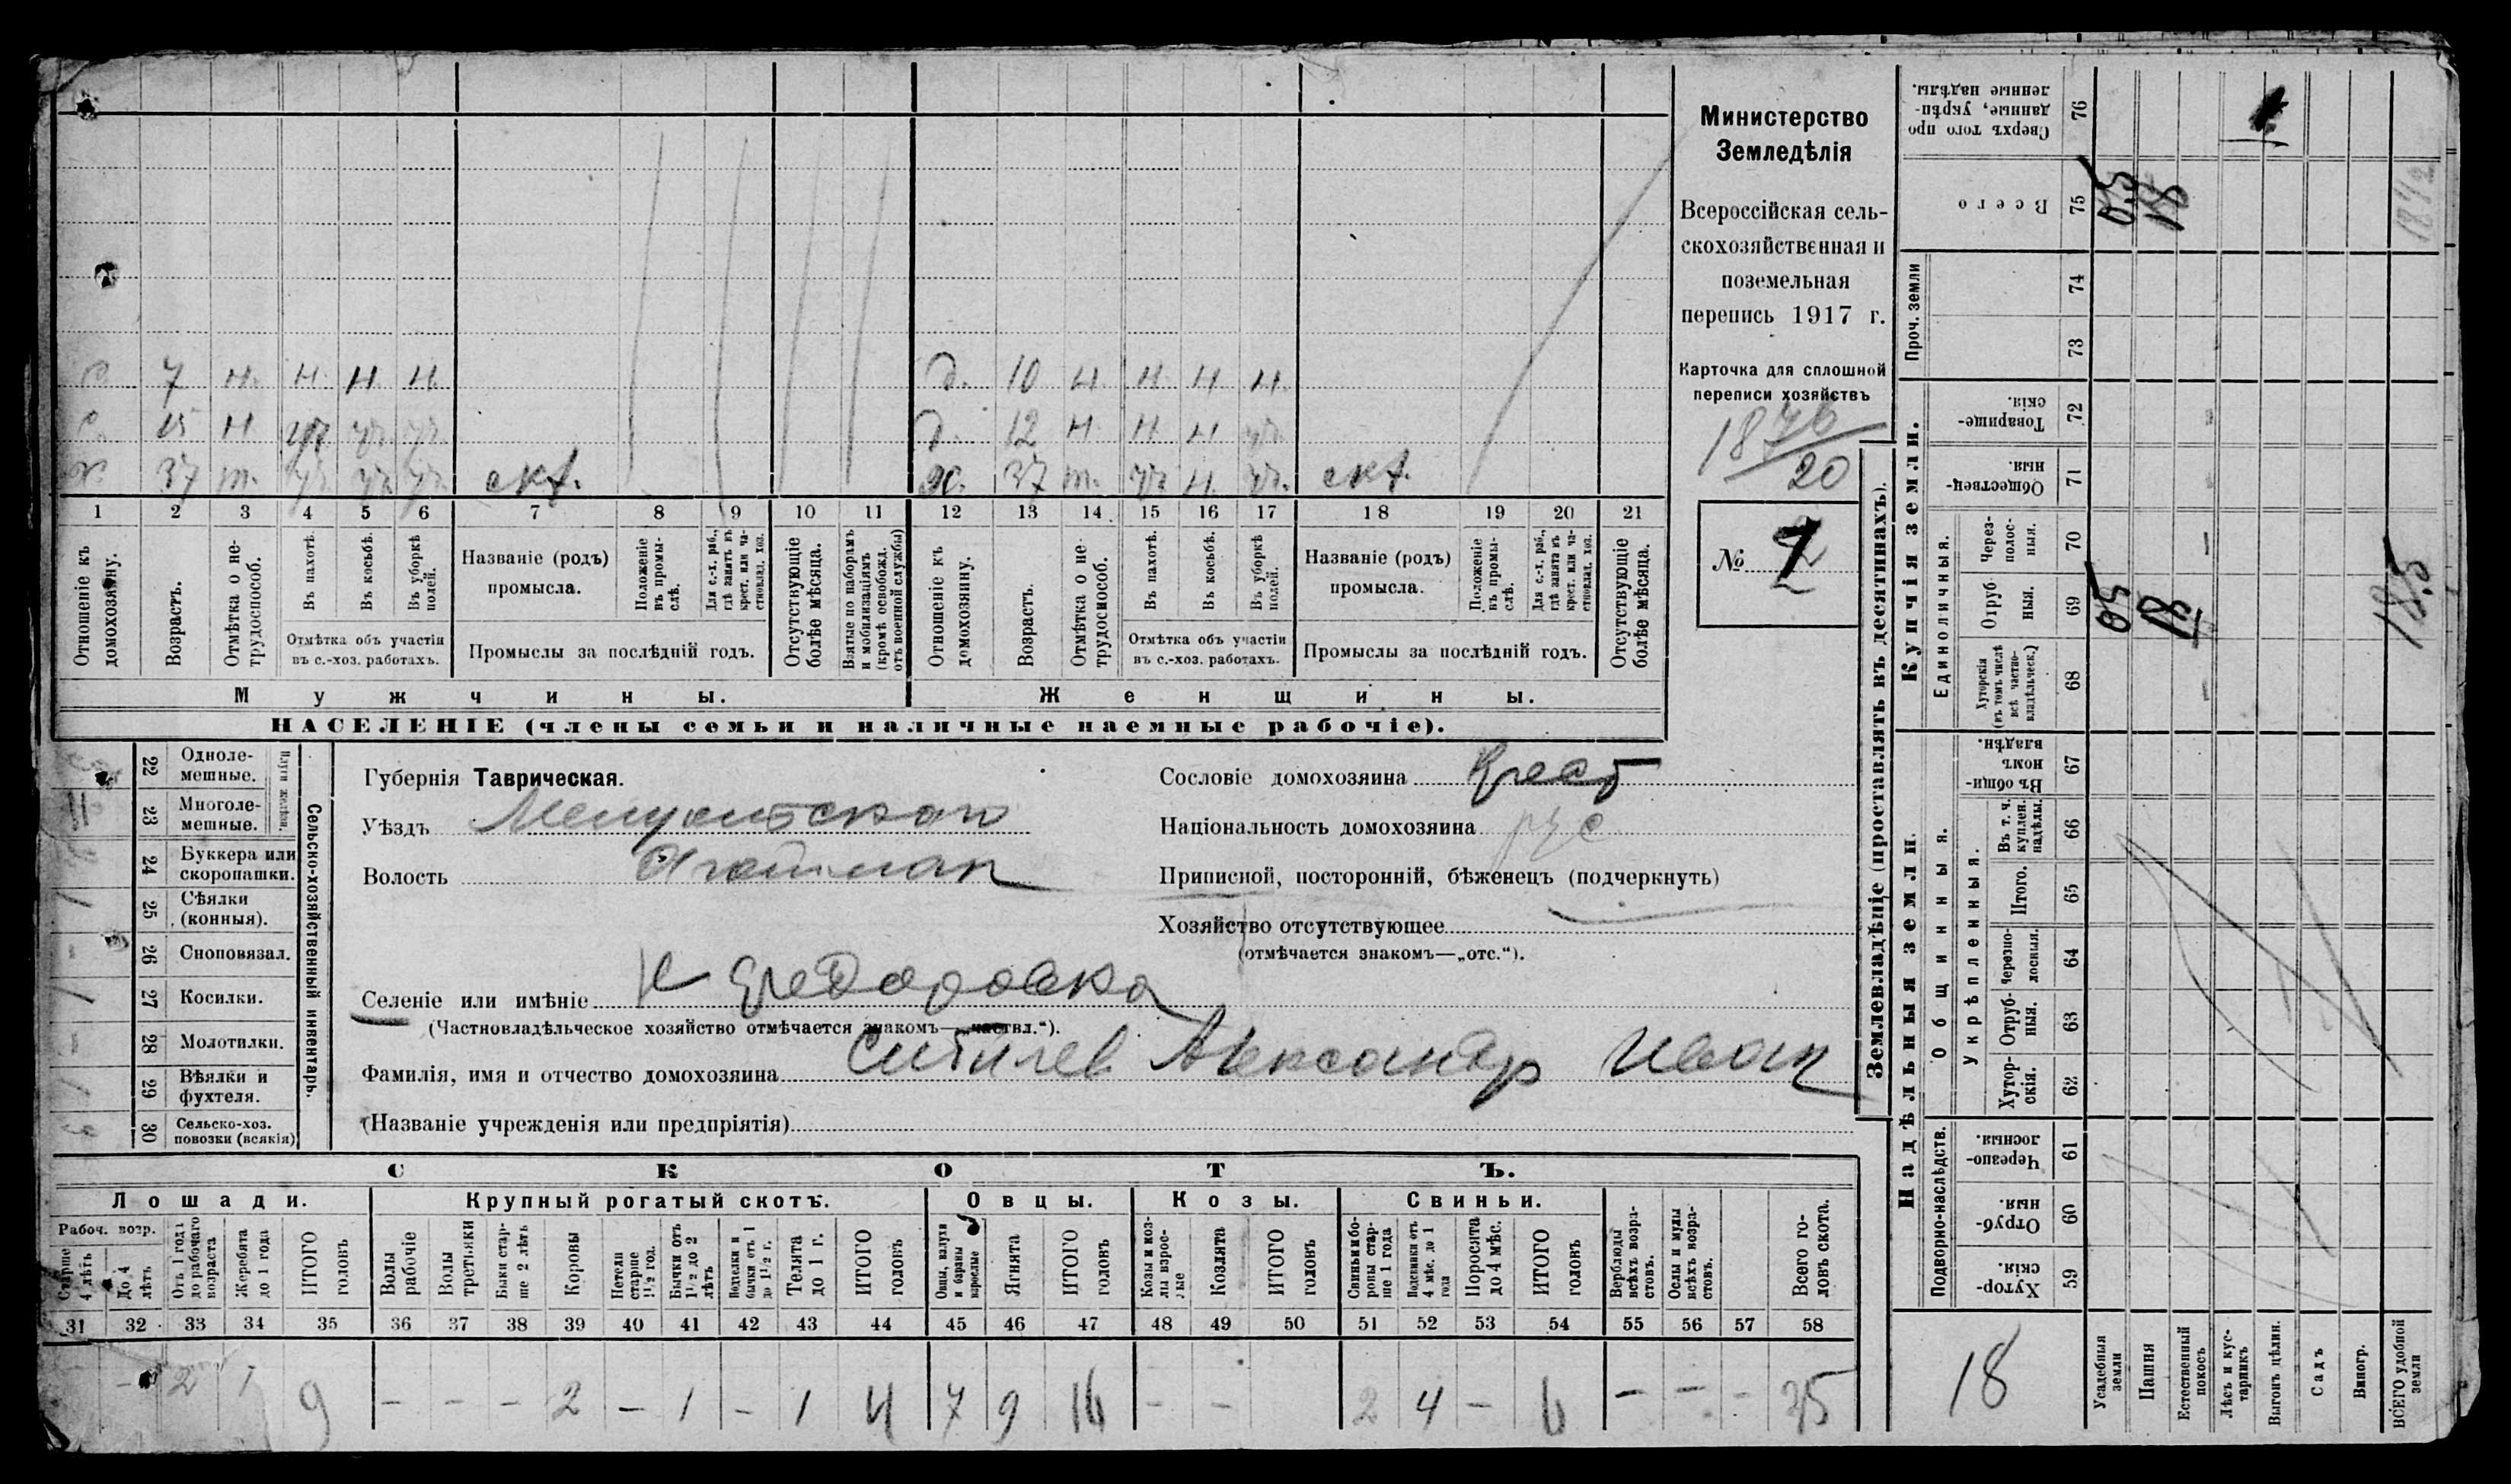 с. 7 н. н. н. н. д. 10 н. н. н. н.
с. 15 н. уч. уч. уч. д. 12 н. н. н. уч.
х. 37 т. уч. уч. уч. скх. ж. 37 т. уч. н. уч. скх.
1 2 3 4 5 6 7 8 9 10 11 12 13 14 15 16 17 18 19 20 21
Отношеніе къ домохозяину.
Возрастъ.
Отмѣтка о не-трудоспособ.
Въ пахотѣ.
Въ косьбѣ.
Въ уборкѣ полей.
Отмѣтка объ участіи
въ с.-хоз. работахъ.
Названіе (родъ)
промысла.
Положеніе въ промы-слѣ.
Для с.-х. раб., гдѣ занятъ въ крест. или ча-стновлад. хоз.
Промыслы за послѣдній годъ.
Отсутствующіе болѣе мѣсяца.
Взятые по наборамъ и мобилизаціямъ (кромѣ освобожд. отъ военной службы)
Отношеніе къ домохозяину.
Возрастъ.
Отмѣтка о не-трудоспособ.
Въ пахотѣ.
Въ косьбѣ.
Въ уборкѣ полей.
Отмѣтка объ участіи
въ с.-хоз. работахъ.
Названіе (родъ)
промысла.
Положеніе въ промы-слѣ.
Для с.-х. раб., гдѣ занята въ крест. или ча-стновлад. хоз.
Промыслы за послѣдній годъ.
Отсутствующіе болѣе мѣсяца.
Мужчины. Женщины.
НАСЕЛЕНІЕ (члены семьи и наличные наемные рабочіе).
Министерство
Земледѣлія
Всероссійская сель-
скохозяйственная и
поземельная
перепись 1917 г.
Карточка для сплошной
переписи хозяйствъ
1876
20
№
Сельско-хозяйственный инвентарь.
Плуги желѣзн.
22 Одноле-мешные.
23 Многоле-мешные.
24 Буккера или скоропашки.
25 Сѣялки (конныя).
26 Сноповязал.
27 Косилки.
28 Молотилки.
29 Вѣялки и фухтеля.
30 Сельско-хоз. повозки (всякія)
Губернія Таврическая.
Уѣздъ
Волость Агайман
Селеніе или имѣніе
(Частновладѣльческое хозяйство отмѣчается знакомъ—„частвл.“).
Фамилія, имя и отчество домохозяина Александр Иван
(Названіе учрежденія или предпріятія)
Сословіе домохозяина Крест
Національность домохозяина рус
Приписной, посторонній, бѣженецъ (подчеркнуть)
Хозяйство отсутствующее
(отмѣчается знакомъ—„отс.“).
СКОТЪ.
Лошади. Крупный рогатый скотъ. Овцы. Козы. Свиньи.
Рабоч. возр.
Старше 4 лѣтъ
До 4 лѣтъ
Отъ 1 года до рабочаго возраста
Жеребята до 1 года
ИТОГО головъ
Волы рабочіе
Волы третьяки
Быки стар-ше 2 лѣтъ
Коровы
Нетели старше 1½ год.
Бычки отъ 1½ до 2 лѣтъ
Подтелки и бычки отъ 1 до 1½ г.
Телята до 1 г.
ИТОГО головъ
Овцы, валухи и бараны взрослые
Ягнята
ИТОГО головъ
Козы и коз-лы взрос-лые
Козлята
ИТОГО головъ
Свиньи и бо-ровы стар-ше 1 года
Подсвинки отъ 4 мѣс. до 1 года
Поросята до 4 мѣс.
ИТОГО головъ
Верблюды всѣхъ возра-стовъ.
Ослы и мулы всѣхъ возра-стовъ.
Всего го-ловъ скота.
31 32 33 34 35 36 37 38 39 40 41 42 43 44 45 46 47 48 49 50 51 52 53 54 55 56 57 58
- 2 1 9 - - - 2 - 1 - 1 4 7 9 16 - - 2 4 - 6 - - - 35
Землевладѣніе (проставлять въ десятинахъ).
Купчія земли.
Надѣльныя земли.
Сверхъ того про-данные, укрѣп-ленные надѣлы. 76
Всего 75
Проч. земли 74 73
Товарище-скія. 72
Обществен-ныя. 71
Единоличныя.
Через-полос-ныя. 70
Отруб-ныя. 69
Хуторскія (въ томъ числѣ всѣ частно-владѣльческ.) 68
Общинныя.
Въ общин-номъ владѣн. 67
Укрѣпленныя.
Въ т. ч. куплен. надѣлы. 66
Итого. 65
Черезпо-лосныя. 64
Отруб-ныя. 63
Хутор-скія. 62
Подворно-наслѣдств.
Черезпо-лосныя. 61
Отруб-ныя. 60
Хутор-скія. 59
05 18
05 18 18,5
18
Усадебныя земли
Пашня
Естественный покосъ
Лѣсъ и кус-тарникъ
Выгонъ цѣлин.
Садъ
Виногр.
ВСЕГО удобной земли